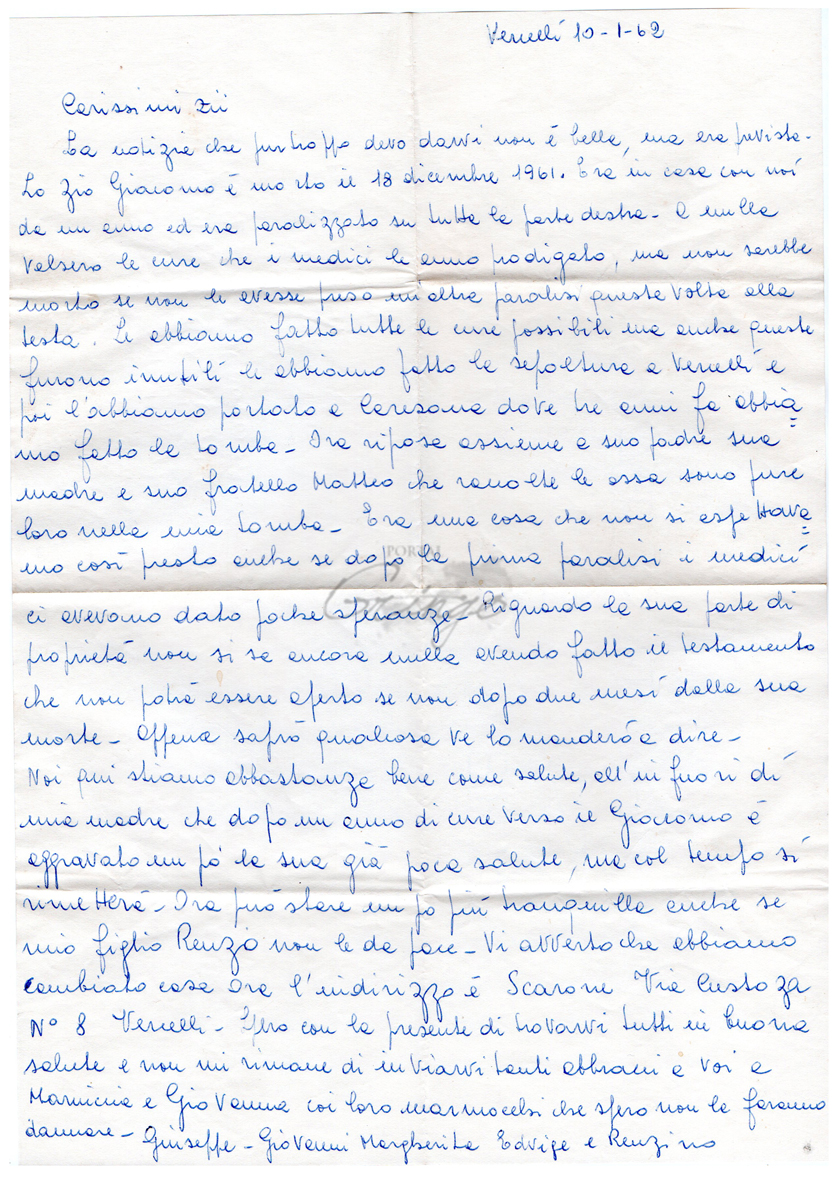 Vercelli 10-1-62
Carissimi zii
La notizia che purtroppo devo darvi non é bella, ma era prevista-
Lo zio Giacomo é morto il 18 dicembre 1961. Era in casa con noi
da un anno ed era paralizzato su tutta la parte destra- A nulla
valsero le cure che i medici le anno prodigato, ma non sarebbe
morto se non le avesse preso un'altra paralisi questa volta alla
testa. Le abbiamo fatto tutte le cure possibili ma anche queste
furono inutili le abbiamo fatto la sepoltura a Vercelli e
poi l'abbiamo portato a Caresana dove tre anni fa abbia=
mo fatto la tomba- Ora riposa assieme a suo padre sua
madre e suo fratello Matteo che racolte le ossa sono pure
loro nella mia tomba- Era una cosa che non si aspettava=
mo così presto anche se dopo la prima paralisi i medici
ci avevamo dato poche speranze- Riguardo la sua parte di
proprietà non si sa ancora nulla avendo fatto il testamento
che non potrà essere aperto se non dopo due mesi dalla sua
morte- Appena saprò qualcosa ve lo manderó a dire-
Noi qui stiamo abbastanza bene come salute, all'infuori di
mia madre che dopo un anno di cure verso il Giacomo é
aggravato un pó la sua giá poca salute, ma col tempo si
rimetterá- Ora puó stare un po piú tranquilla anche se
mio figlio Renzo non le da pace- Vi avverto che abbiamo
cambiato casa ora l'indirizzo é Scarone Via Custoza
N° 8 Vercelli- Spero con la presente di trovarvi tutti in buona
salute e non mi rimane di inviarvi tanti abbracci a voi a
e Giovanna coi loro marmocchi che spero non le faranno
dannare- Giuseppe- Giovanni Margherita Edvige e Renzino
PORTAL